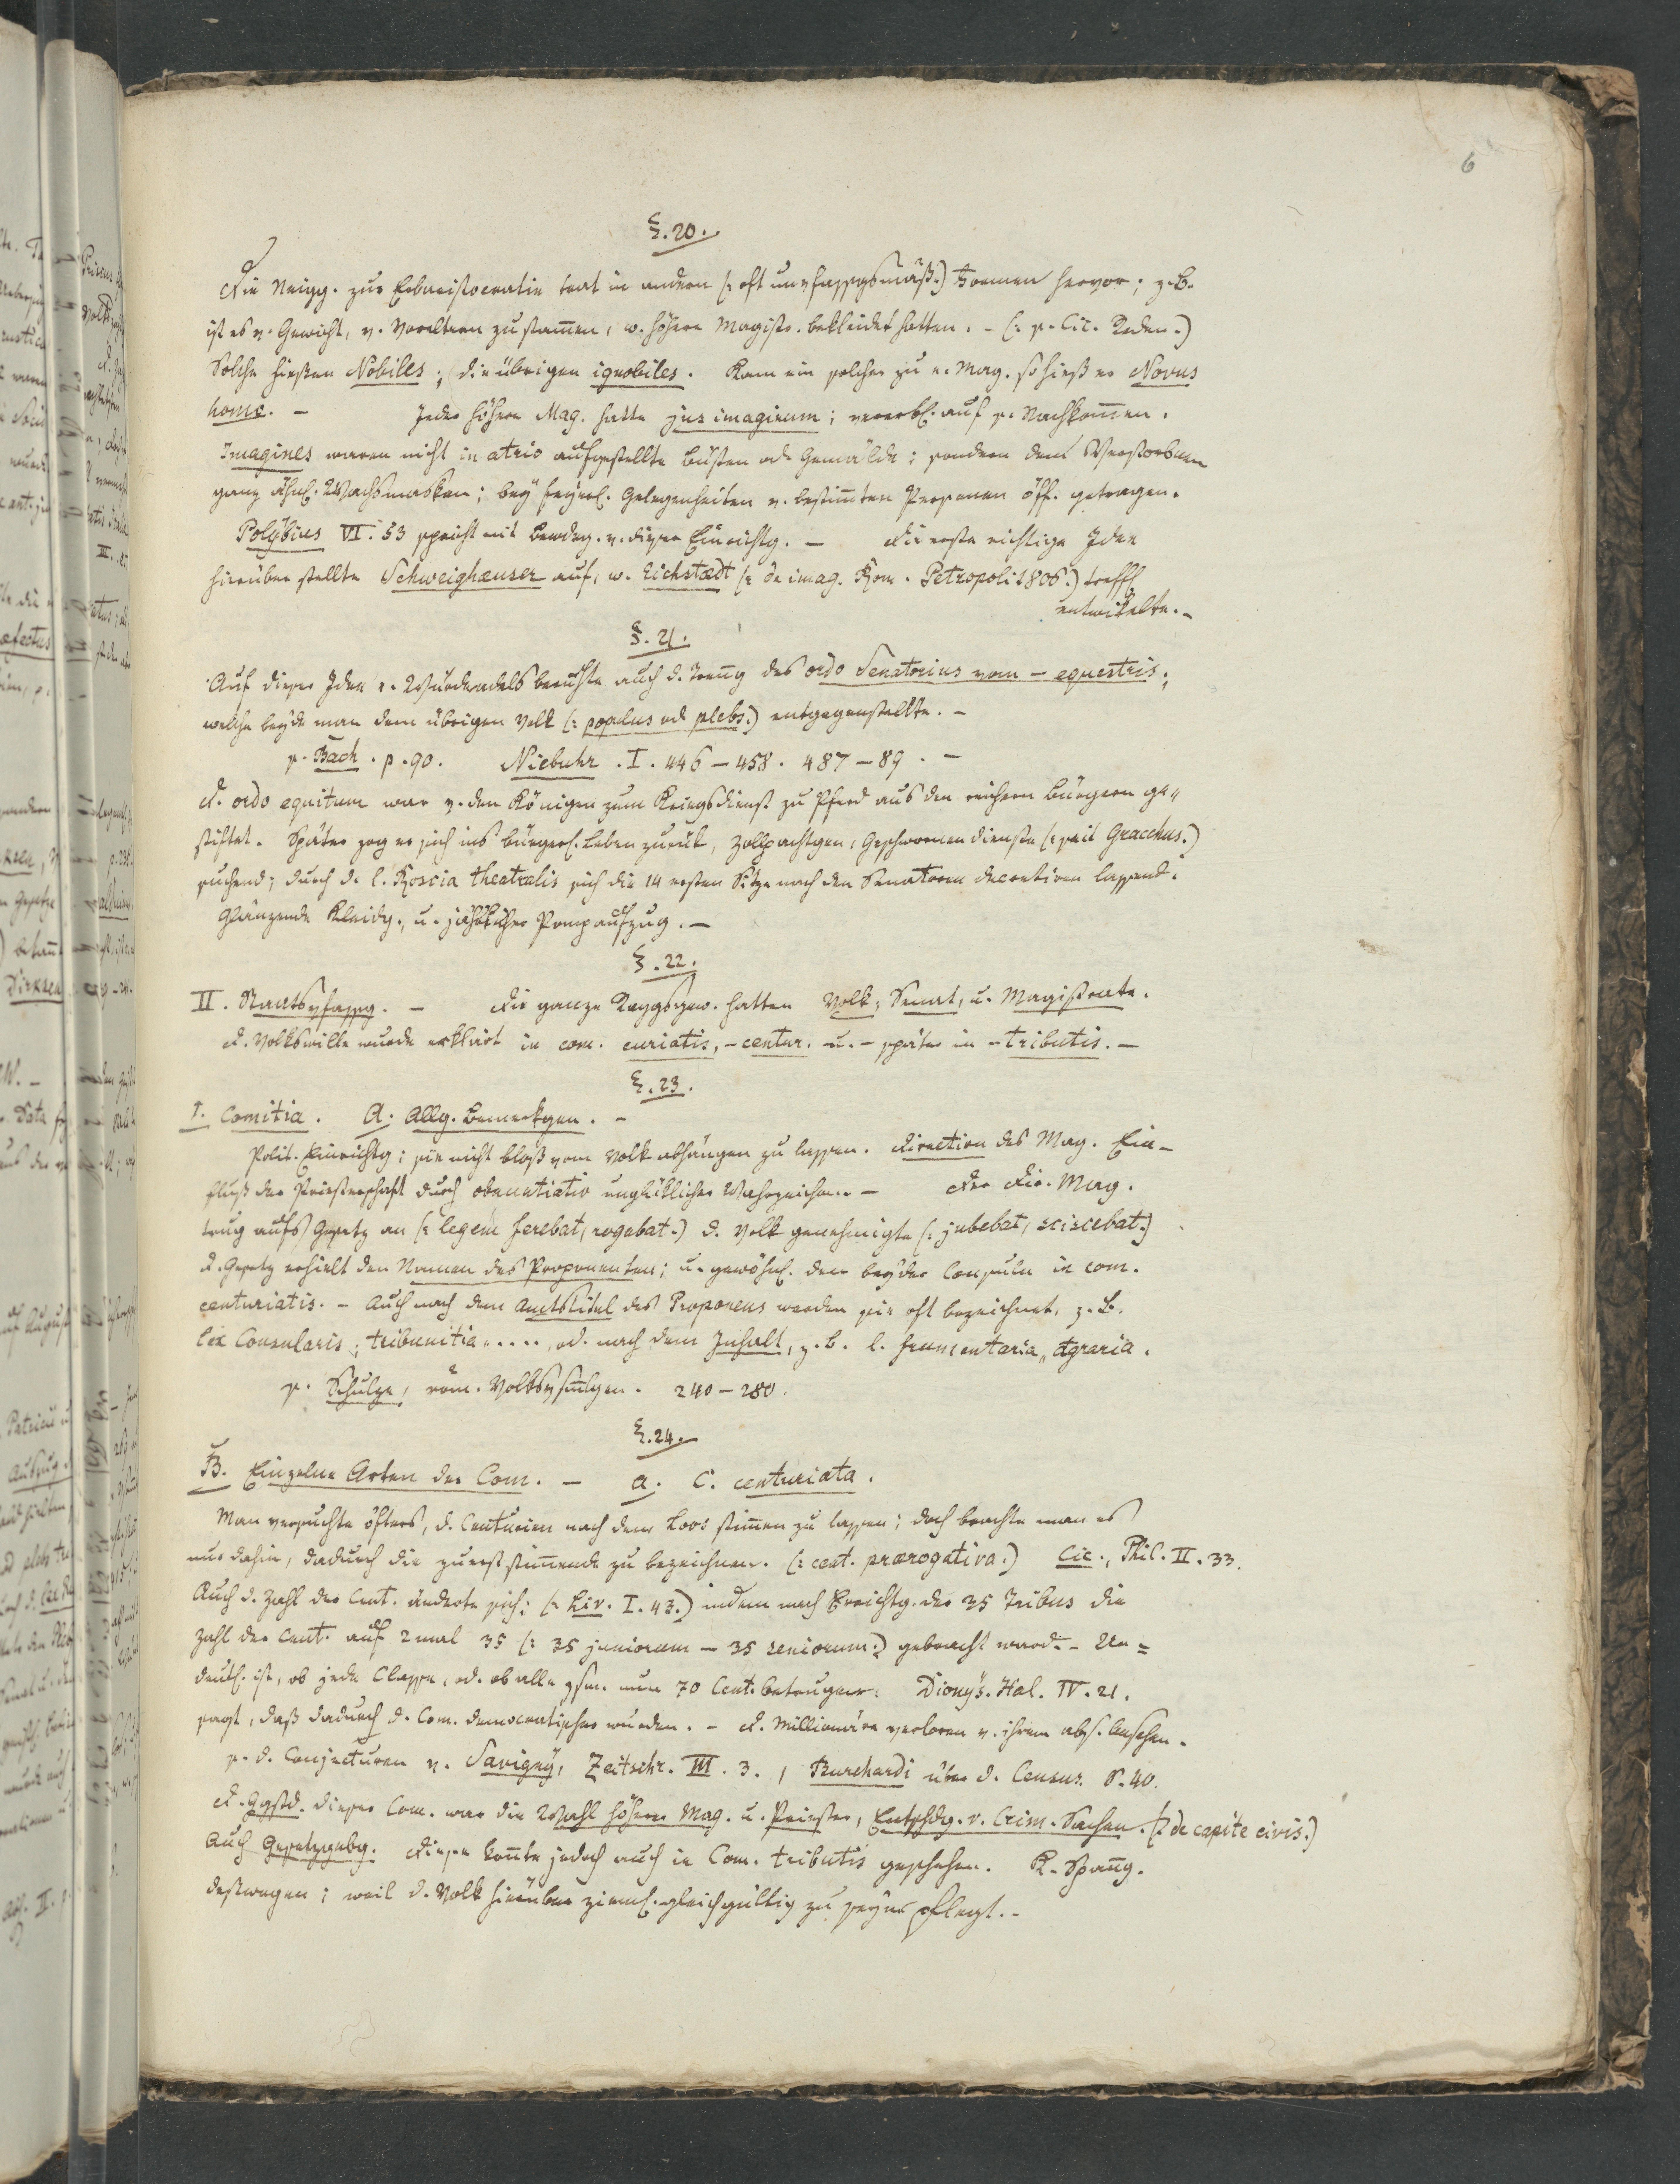 6
§. 20.
Die Neigg. zur Erbaristocratie trat in andern (: oft unvfassgsmäß:) Formen hervor; z. B.
ist es v. Gewicht, v. Voreltern zu stam̄en, w. höhere Magistr. bekleidet hatten. - (: s. Cic. Reden.)
Solche hießen Nobiles; die übrigen ignobiles. Kam ein solcher zu e. Mag. so hieß er Novus
homo. - Jeder höhere Mag. hatte jus imaginum; vererbl. auf s. Nachkom̄en.
Imagines waren nicht in atrio aufgestellte Büsten od. Gemälde; sondern dem Verstorbenen
ganz ähnl. Wachsmasken; bey feyerl. Gelegenheiten v. bestim̄ten Personen öff. getragen.
Polybius VI. 53 spricht mit Bewdrg. v. dieser Einrichtg. - Die erste richtige Idee
hierüber stellte Schweighæuser auf, w. Eichstædt (: de imag. Rom. Petropoli 1806.) treffl.
entwickelte. -
§. 21.
Auf dieser Idee e. Würdeadels beruhte auch d. Tren̄g des ordo Senatorius vom - equestris;
welche beyde man dem übrigen Volk (: populus od plebs.) entgegenstellte. -
s. Bach. p. 90. Niebuhr. I. 446 - 458. 487 - 89. -
D. ordo equitum war v. den Königen zum Kriegsdienst zu Pferd aus den reichern Bürgern ge„
stiftet. Später zog er sich ins bürgerl. Leben zurük, Zollpachtgen, Geschwornen dienste (: seit Gracchus.)
suchend; durch d. l. Roscia theatralis sich die 14 ersten Sitze nach den Senatoren decretiren lassend.
Glänzende Kleidg., u. jährlicher Pompaufzug. -
§. 22.
II. Staatsvfassg. - Die ganze Reggsgew. hatten Volk, Senat, u. Magistrate.
D. Volkswille wurde erklärt in com. curiatis, - centur. u. - später in - tributis. -
§. 23.
1. Comitia. A. Allg. Bemerkgen. -
Polit. Einrichtg; sie nicht bloß vom Volk abhängen zu lassen. Direction des Mag. Ein-
fluß der Priesterschaft durch obnuntiatio unglüklicher Wahrzeichen. - Der dir. Mag.
trug aufs Gesetz an (: legem ferebat, rogabat.) d. Volk genehmigte (: jubebat, sciscebat.)
D. Gesetz erhielt den Namen des Proponenten; u. gewöhnl. den beyder Consuln in com.
centuriatis. - Auch nach dem Amtstitel des Proponens werden sie oft bezeichnet. z. B.
lex Consularis; tribunitia . . . . , od. nach dem Inhalt, z. b. l. frumentaria, Agraria.
s. Schulze, röm. Volksvsm̄lgen. 240 - 280.
§. 24.
B. Einzelne Arten der Com. - a. C. centuriata.
Man versuchte öfters, d. Centurien nach dem Loos stim̄en zu lassen; doch brachte man es
nur dahin, dadurch die zuerst stim̄ende zu bezeichnen. (: cent. prærogativa.) Cic., Phil. II. 33.
Auch d. Zahl der Cent. änderte sich; (: Liv. I. 43.) indem nach Errichtg. der 35 Tribus die
Zahl der Cent. auf 2 mal 35 (: 35 juniorum - 35 seniorum.) gebracht ward. - Un=
deutl. ist, ob jede Classe, od. ob alle zsm. nun 70 Cent. betrugen. Dionys. Hal. IV. 21.
sagt, daß dadurch d. Com. democratischer wurden. - D. Millionäre verloren v. ihrem abs. Ansehen.
s. d. Conjecturen v. Savigny, Zeitschr. III. 3., Burchardi über d. Census. S. 40.
D. Ggstd. dieser Com. war die Wahl höherer Mag. u. Priester, Entschdg. v. Crim. Sachen. (: de capite civis.)
Auch Gesetzgebg. Diese kon̄te jedoch auch in Com. tributis geschehen. K. Span̄g.
deßwegen; weil d. Volk hierüber zieml. gleichgültig zu seyn pflegt. -